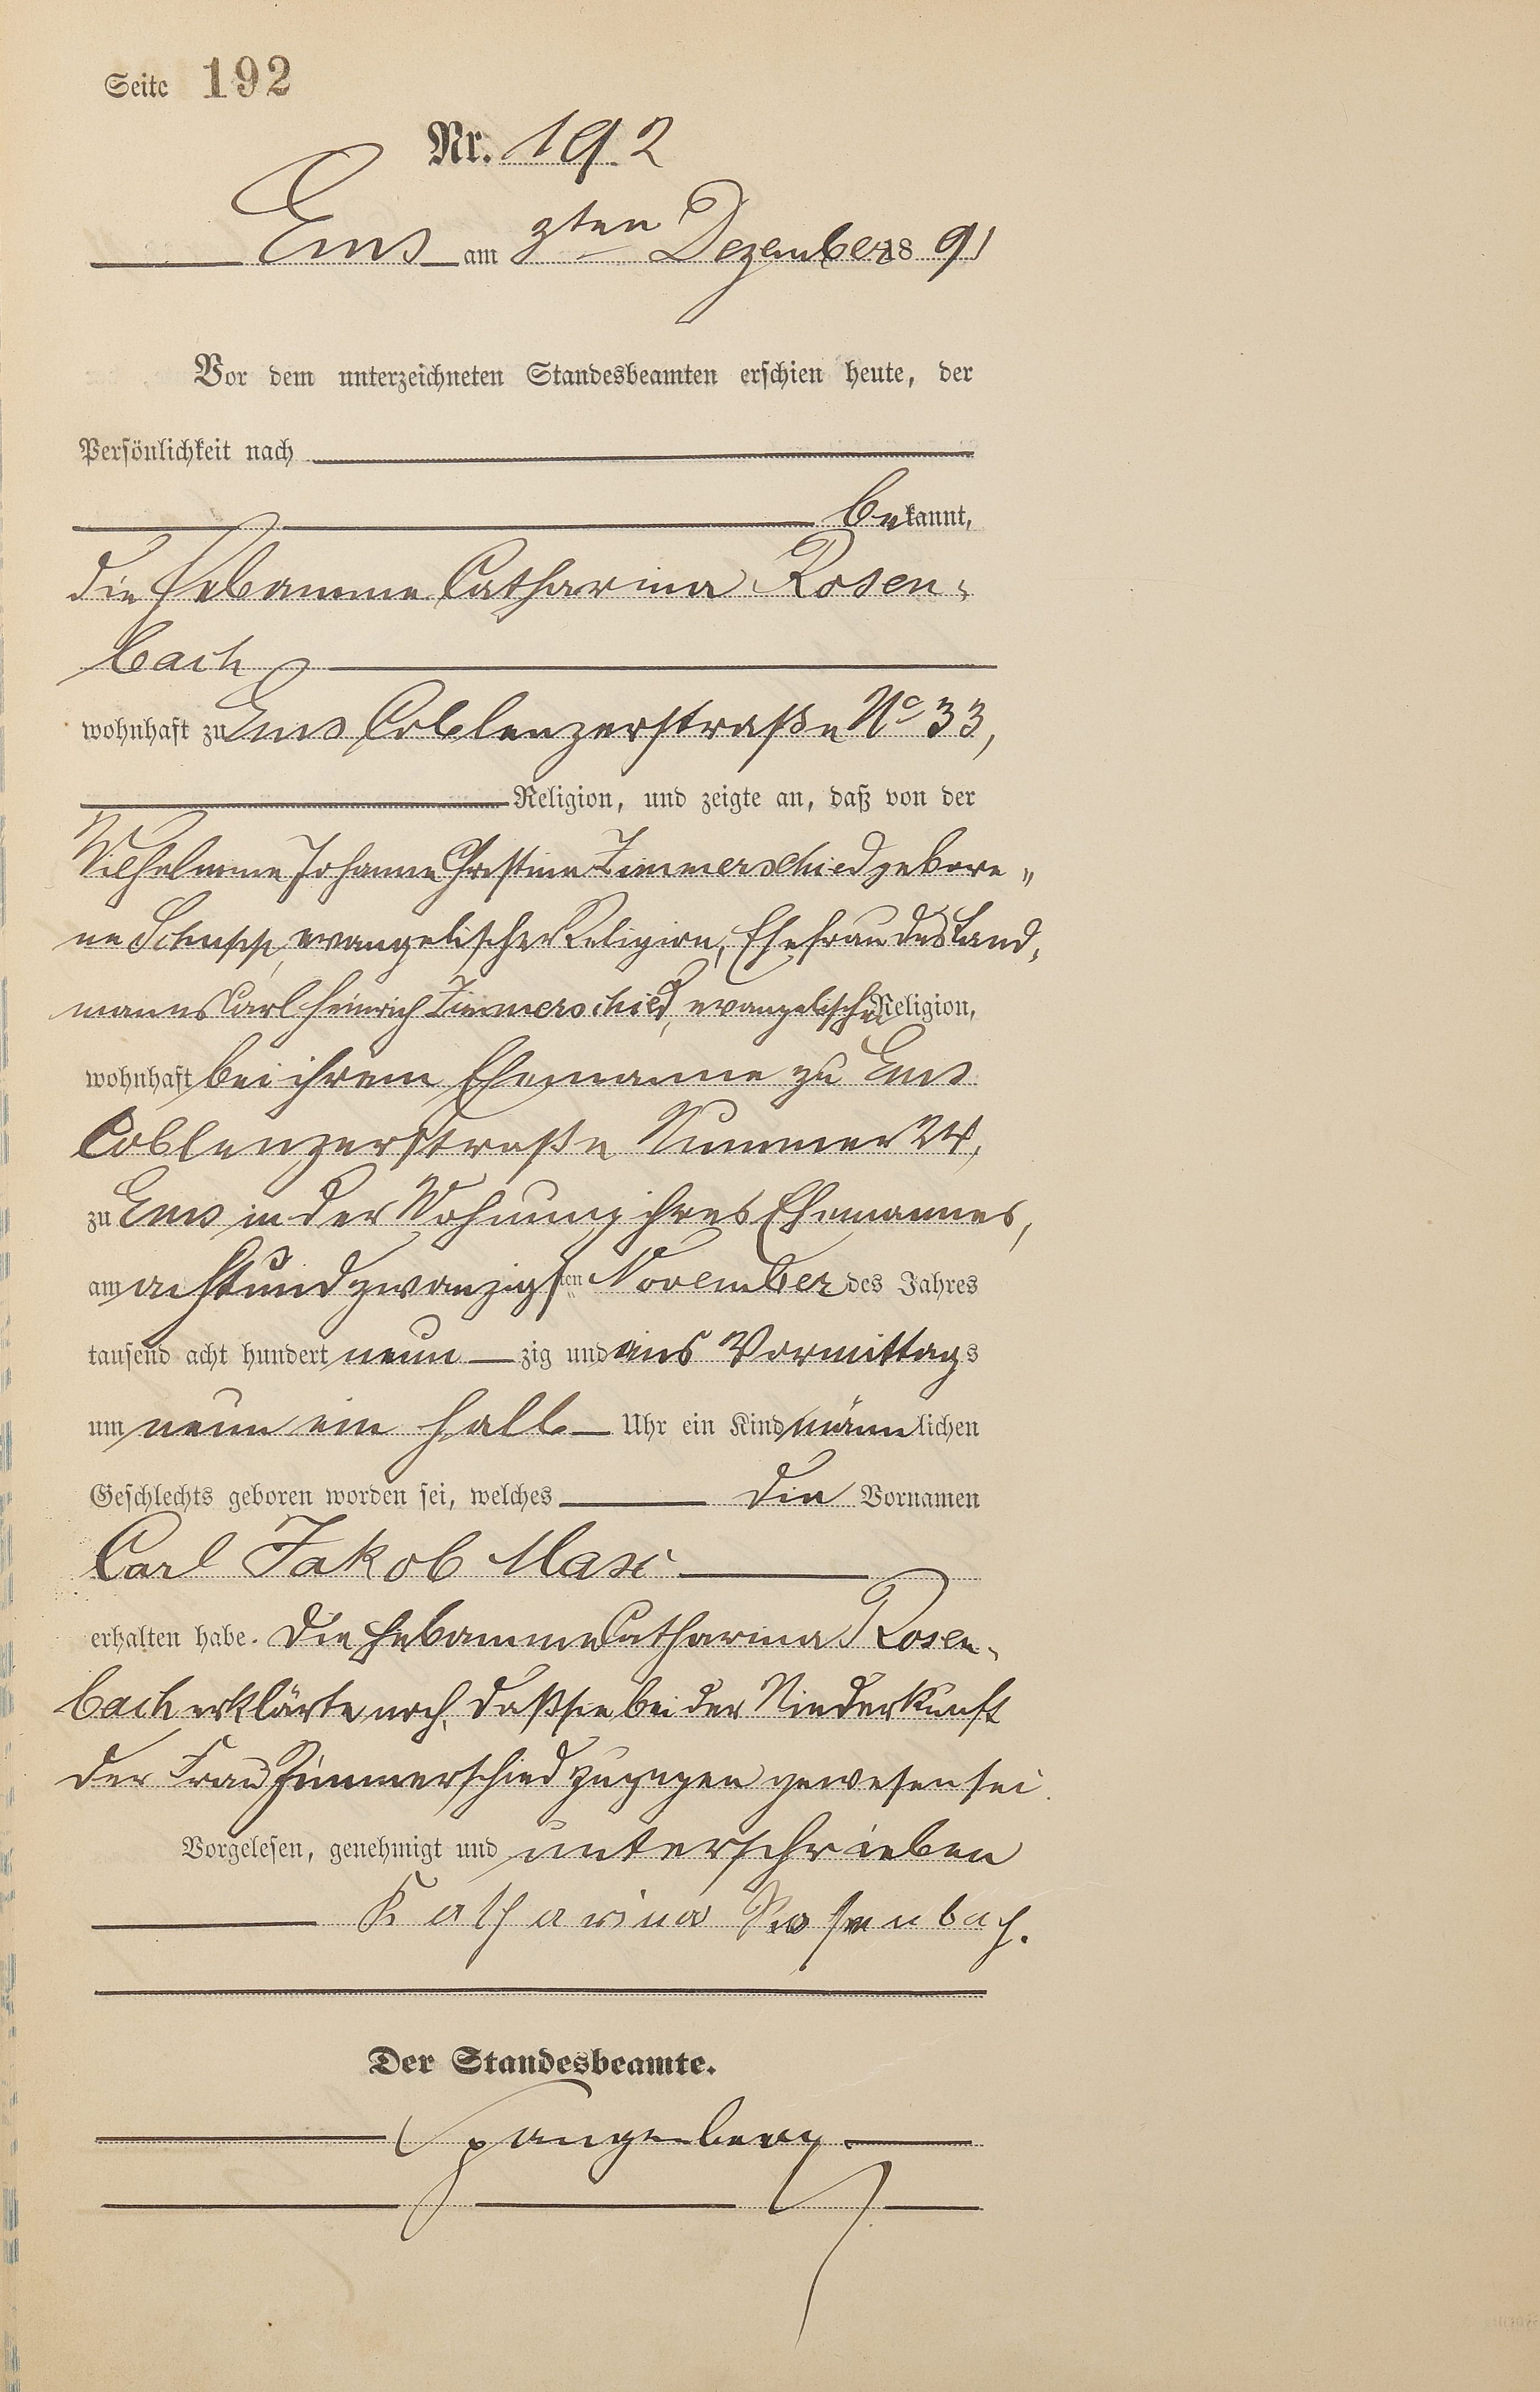 Seite 192
Nr. 192
Ems am 3ten Dezember 18 91
Vor dem unterzeichneten Standesbeamten erschien heute, der
Persönlichkeit nach
bekannt,
die Hebamme Catharina Rosen-
bach
wohnhaft zu Ems Coblenzerstraße No 33,
Religion, und zeigte an, daß von der
Wilhelmine Johanne Christine Zimmerschied gebore-
ne Schupp, evangelischer Religion, Ehefrau des Land-
manns Carl Heinrich Zimmerschied, evangelischer Religion,
wohnhaft bei ihrem Ehemanne zu Ems
Coblenzerstraße Nummer 24,
zu Ems in der Wohnung ihres Ehemannes,
am achtundzwanzigsten November des Jahres
tausend acht hundert neun zig und eins Vormittags
um neun ein halb Uhr ein Kind männlichen
Geschlechts geboren worden sei, welches die Vornamen
Carl Jakob Max
erhalten habe. Die Hebamme Catharina Rosen-
bach erklärte noch, daß sie bei der Niederkunft
der Frau Zimmerschied zugegen gewesen sei.
Vorgelesen, genehmigt und unterschrieben
Katharina Rosenbach.
Der Standesbeamte.
Spangenberg